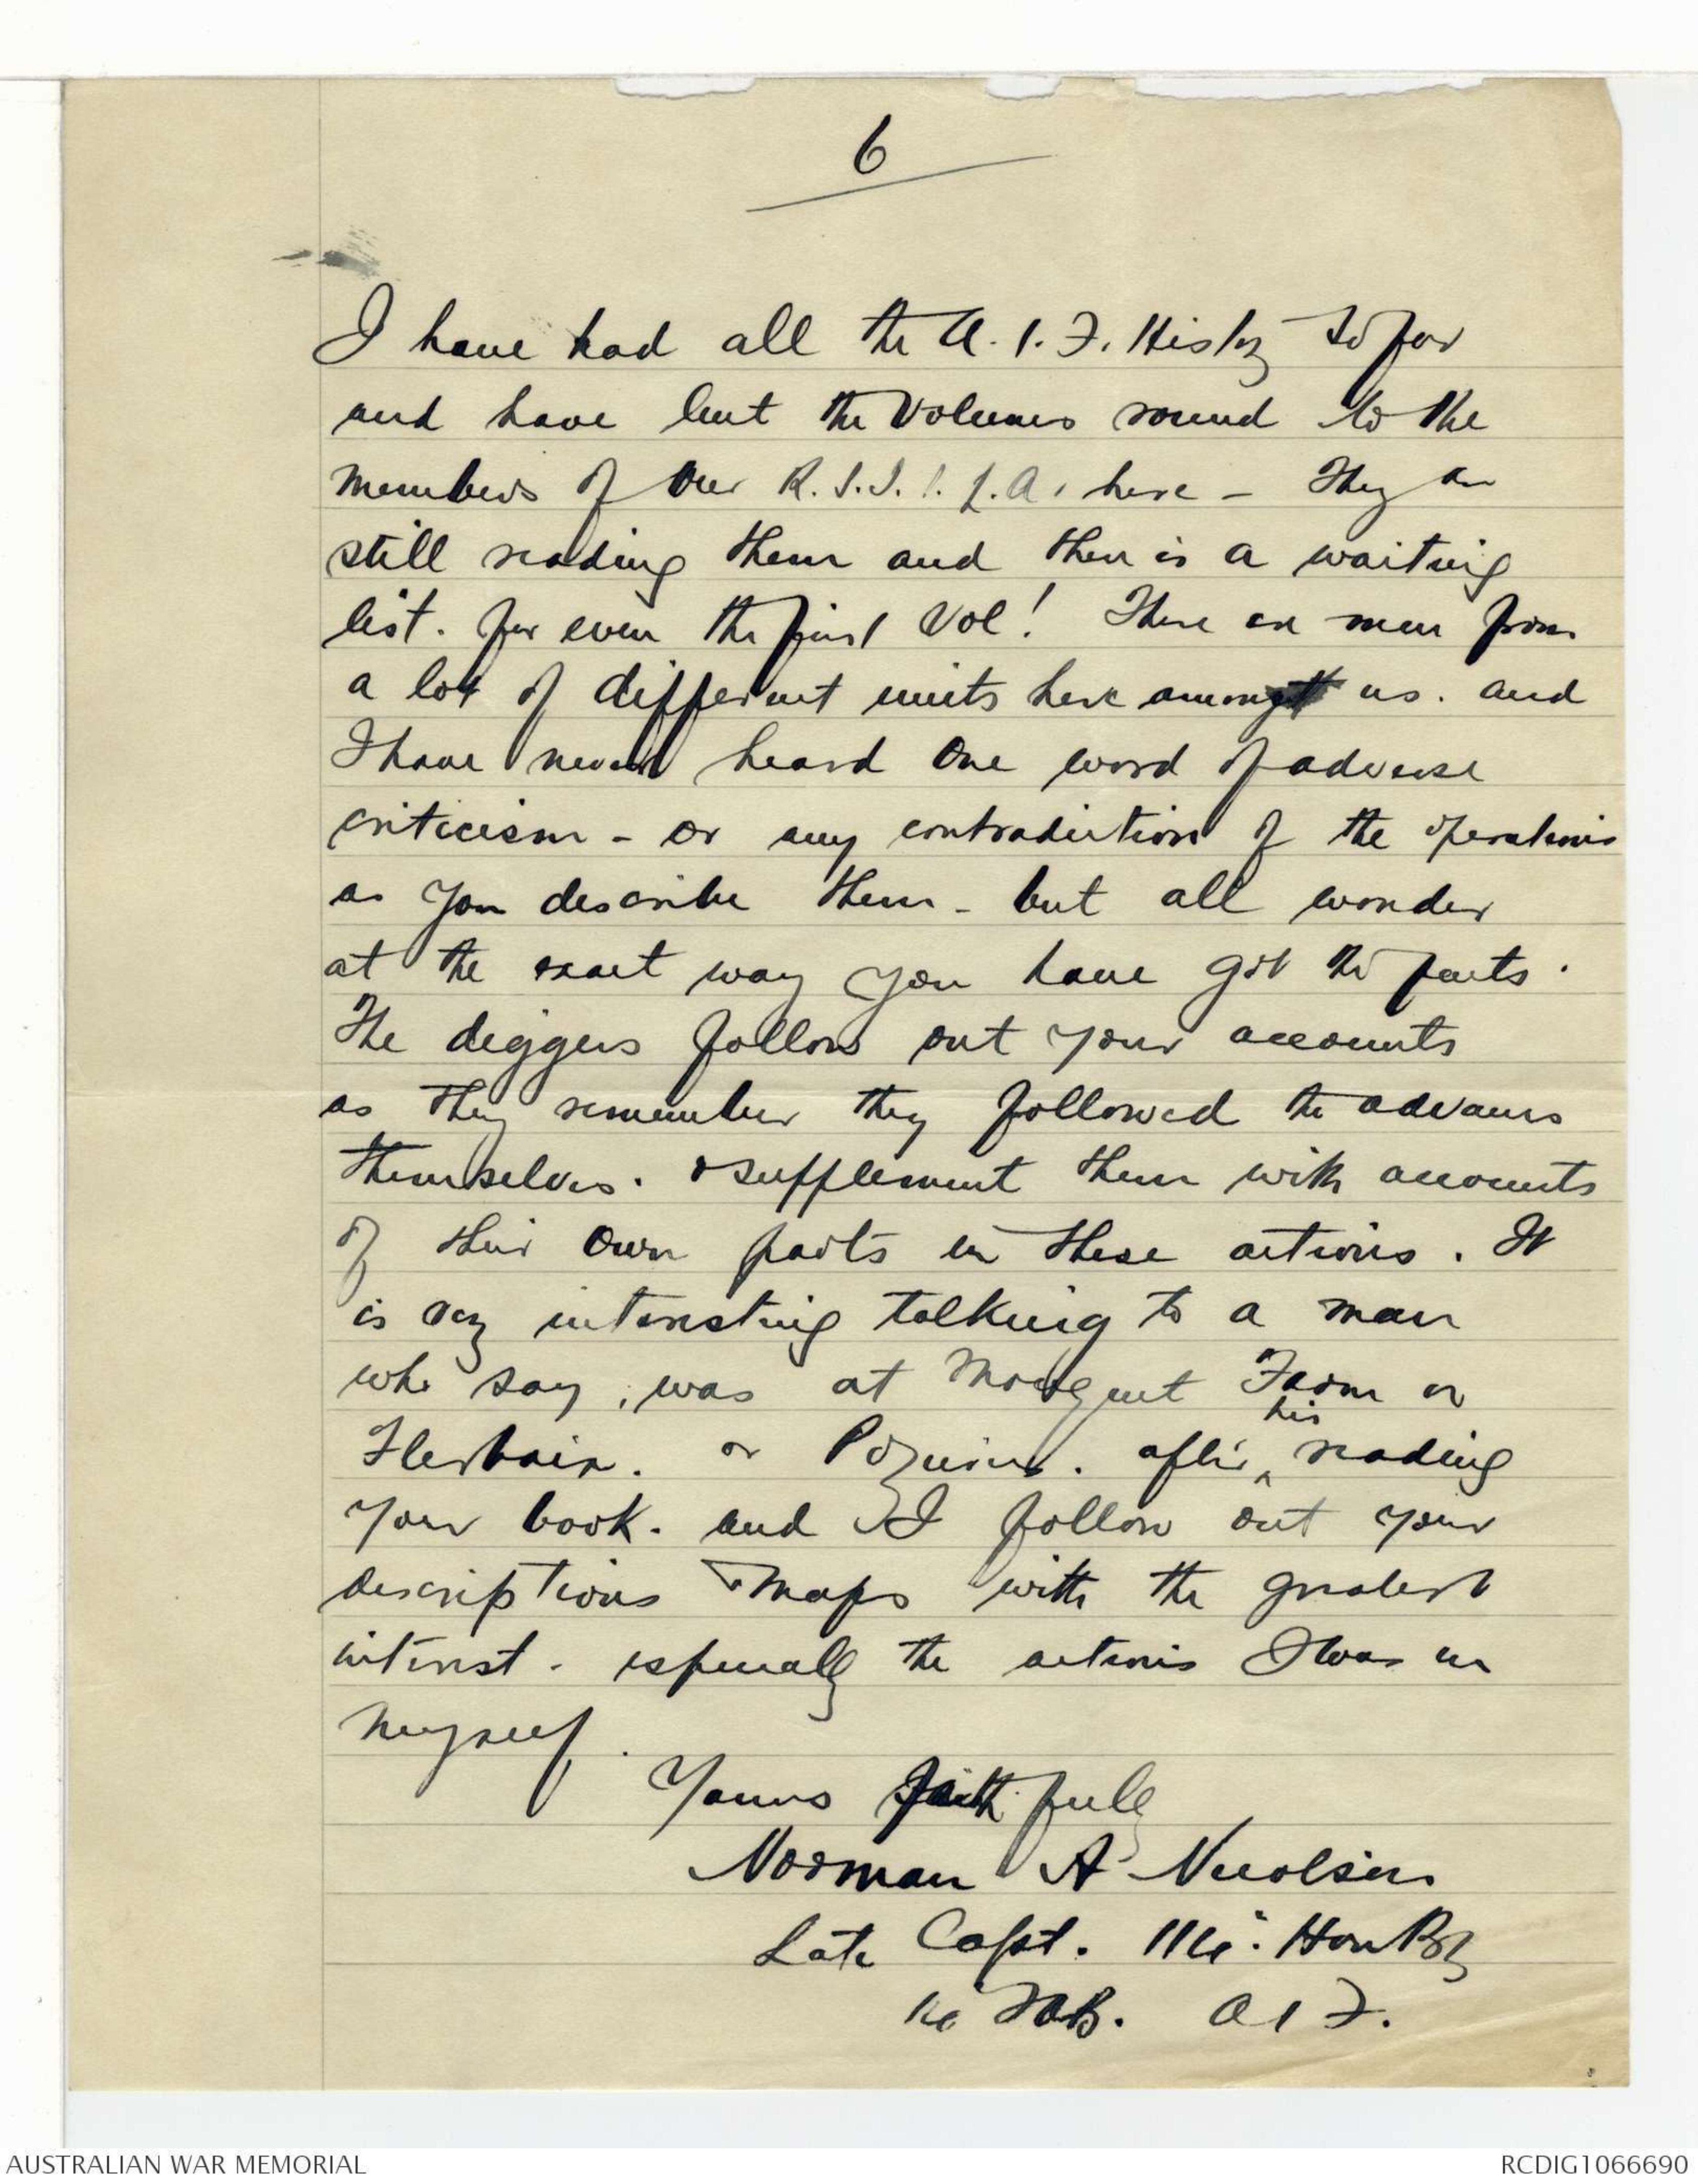 6
I have had all the A.I.F. History so far
and have lent the Volumes round to the
members of our R.S.S.I.L.A. here - They are
still reading them and there is a waiting
list. for even the first Vol! There are men from
a lot of different units here amongst us. and
I have never heard one word of adverse
criticism - or any contradiction of the operations
as you describe them - but all wonder
at the exact way you have got the facts.
The diggers follow out your accounts
as they remember they followed the advances
themselves. & supplement them with accounts
of their own parts in these actions. It
is very interesting talking to a man
who say, was at Mouquet Farm or
his
Flerbaix. or Pozieres. after reading
your book. and I follow out your
descriptions & maps with the greatest
interest - especially the actions I was in
myself.
Yours faithfully
Norman A Nicolson
Late Capt. 111th How Bty
AIF.
AUSTRALIAN WAR MEMORIAL
RCDIG1066690